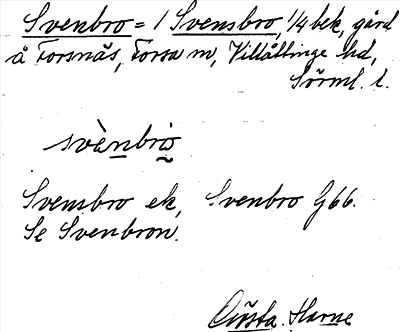 Svenbro = 1 Svensbro, 1/4 bek, gård
å Forsnäs, Forssa sn, Villåttinge hd,
Sörml. l.
svènbrò
Svensbro ek, Svenbro G66.
Se Svenbron.
Gösta Harne